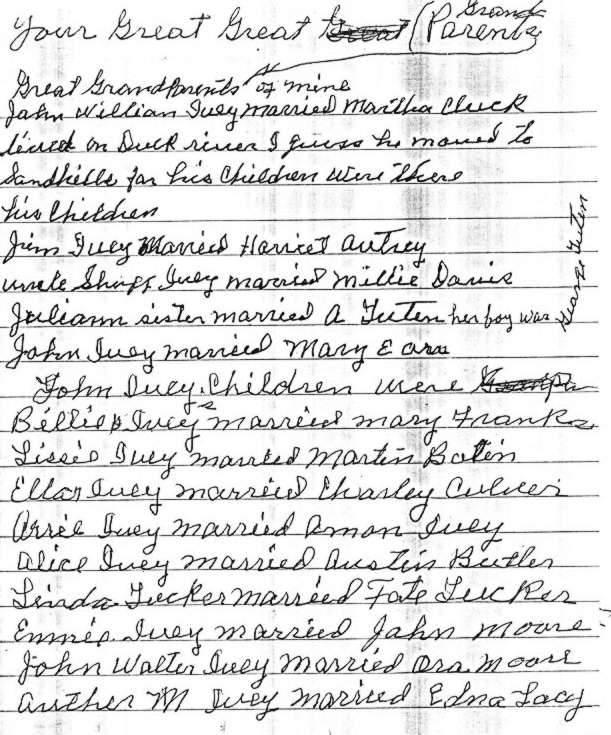 Your Great Great Great (Grand Parents)
Great GrandParents of mine
John William Ivey married Martha Cluck
lived on Duck river I guess he moved to
Sandhills for his Children were there
his Children
Jim Ivey Maried Harriet Autrey
uncle Ivey married Millie Davis
Juliann sister married A Tuten her boy was George Tuten
John Ivey married Mary E
John Ivey's Children were
Billie Ivey married Mary Franks
Lissie Ivey married Martin
Ellar Ivey married Charley Culver
Arrie Ivey married Amon Ivey
Alice Ivey married Austin Butler
Linda Tucker married Fate Tucker
Emmie Ivey married John Moore
John Walter Ivey Married Ora Moore
Auther M Ivey Married Edna Lacy